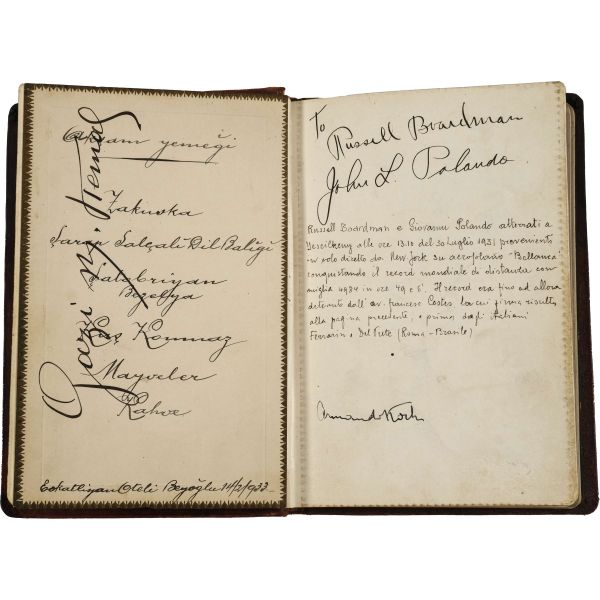 Akşam yemeği
Zakuska
Saran Salçalı Dil Balığı
Şatobriyan
Bezelya
Kuş Konmaz
Mayveler
Kahve
Tokatliyan Oteli Beyoğlu 14/2/933
Gazi M. Kemal
To
Russell Boardman
John L. Polando
Russell Boardman e Giovanni Polando atterrati a
Yescilkeuy alle ore 13.10 del 30 Luglio 1931 provenienti
in volo diretto da New Jork su aeroplano "Bellanca"
conquistando il record mondiale di distanza con
miglia 4984 in ore 49 e 6'. Il record era fino ad allora
detenuto dall'av. francese Costes, la cui firma risulta
alla pagina precedente, e prima dagli italiani
Ferrarin e Del Prete (Roma-Brasile).
Armando Koch